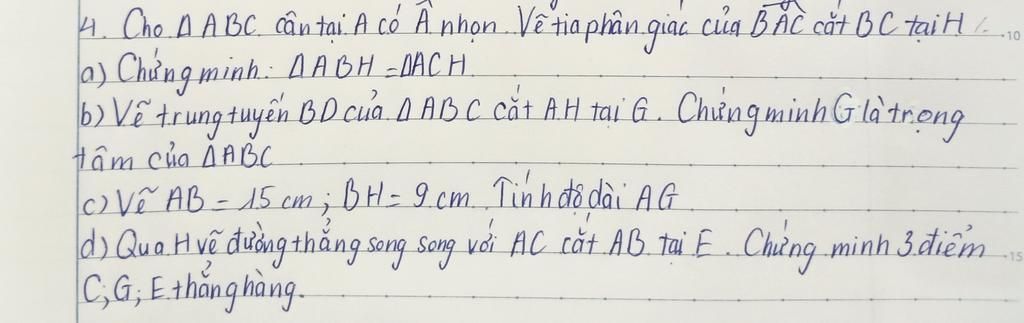 4. Cho Δ ABC cân tại A có Â nhọn. Vẽ tia phân giác của BAC cắt BC tại H
a) Chứng minh: ΔABH = ΔACH
b) Vẽ trung tuyến BD của Δ ABC cắt AH tại G. Chứng minh G là trọng
tâm của ΔABC
c) Vẽ AB = 15 cm; BH = 9 cm. Tính độ dài AG
d) Qua H vẽ đường thẳng song song với AC cắt AB tại E. Chứng minh 3 điểm
C; G; E thẳng hàng.
10
15